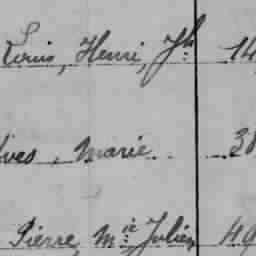 Louis, Henri, Jh. 14
Yves, Marie 38
Pierre, Mie Julien 49